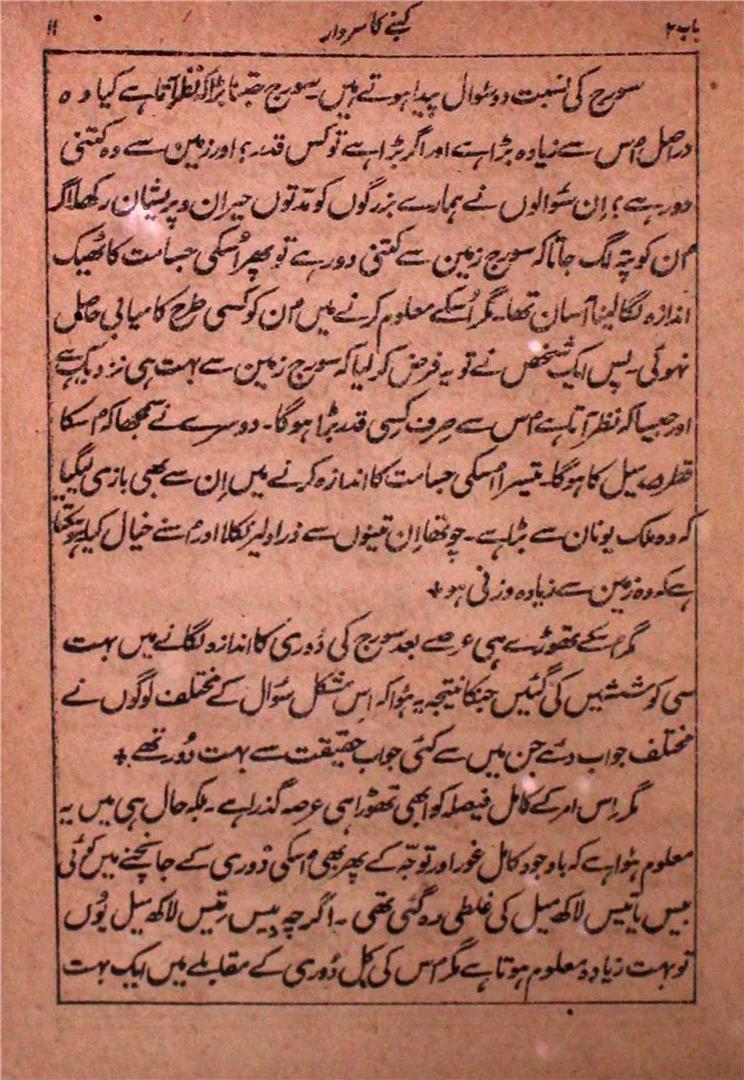 باب ۲ کنبے کا سردار ۱۱
سورج کی نسبت دو سوال پیدا ہوتے ہیں۔ سورج جتنا بڑا کہ نظر آتا ہے کیا وہ
دراصل اُس سے زیادہ بڑا ہے اور اگر بڑا ہے تو کس قدر؟ اور زمین سے وہ کتنی
دور ہے؟ اِن سوالوں نے ہمارے بزرگوں کو مدّتوں حیران و پریشان رکھا۔ اگر
اُن کو پتہ لگ جاتا کہ سورج زمین سے کتنی دور ہے تو پھر اُسکی جسامت کا ٹھیک
اندازہ لگا لینا آسان تھا۔ مگر اُسکے معلوم کرنے میں اُن کو کسی طرح کامیابی حاصل
نہوئی۔ پس ایک شخص نے تو یہ فرض کر لیا کہ سورج زمین سے بہت ہی نزدیک ہے
اور جیسا کہ نظر آتا ہے اُس سے صرف کسی قدر بڑا ہوگا۔ دوسرے نے سمجھا کہ اُسکا
قطر میل کا ہوگا۔ تیسرا اُسکی جسامت کا اندازہ کرنے میں اِن سے بھی بازی لیگیا
کہ وہ ملک یونان سے بڑا ہے۔ چوتھا اِن تینوں سے ذرا دلیر نکلا اور اُسنے خیال کیا ہوسکتا
ہے کہ وہ زمین سے زیادہ وزنی ہو +
مگر اُسکے تھوڑے ہی عرصے بعد سورج کی دُوری کا اندازہ لگانے میں بہت
سی کوششیں کی گئیں جنکا نتیجہ یہ ہؤا کہ اِس مشکل سوال کے مختلف لوگوں نے
مختلف جواب دئے جن میں سے کئی جواب حقیقت سے بہت دُور تھے +
مگر اِس امر کے کامل فیصلہ کو ابھی تھوڑا ہی عرصہ گذرا ہے۔ بلکہ حال ہی میں یہ
معلوم ہؤا ہے کہ باوجود کامل غور اور توجّہ کے پھر بھی اُسکی دُوری کے جانچنے میں کوئی
بیس یا تیس لاکھ میل کی غلطی رہ گئی تھی۔ اگرچہ بیس تیس لاکھ میل یُوں
تو بہت زیادہ معلوم ہوتا ہے مگر اُس کی کل دُوری کے مقابلے میں ایک بہت